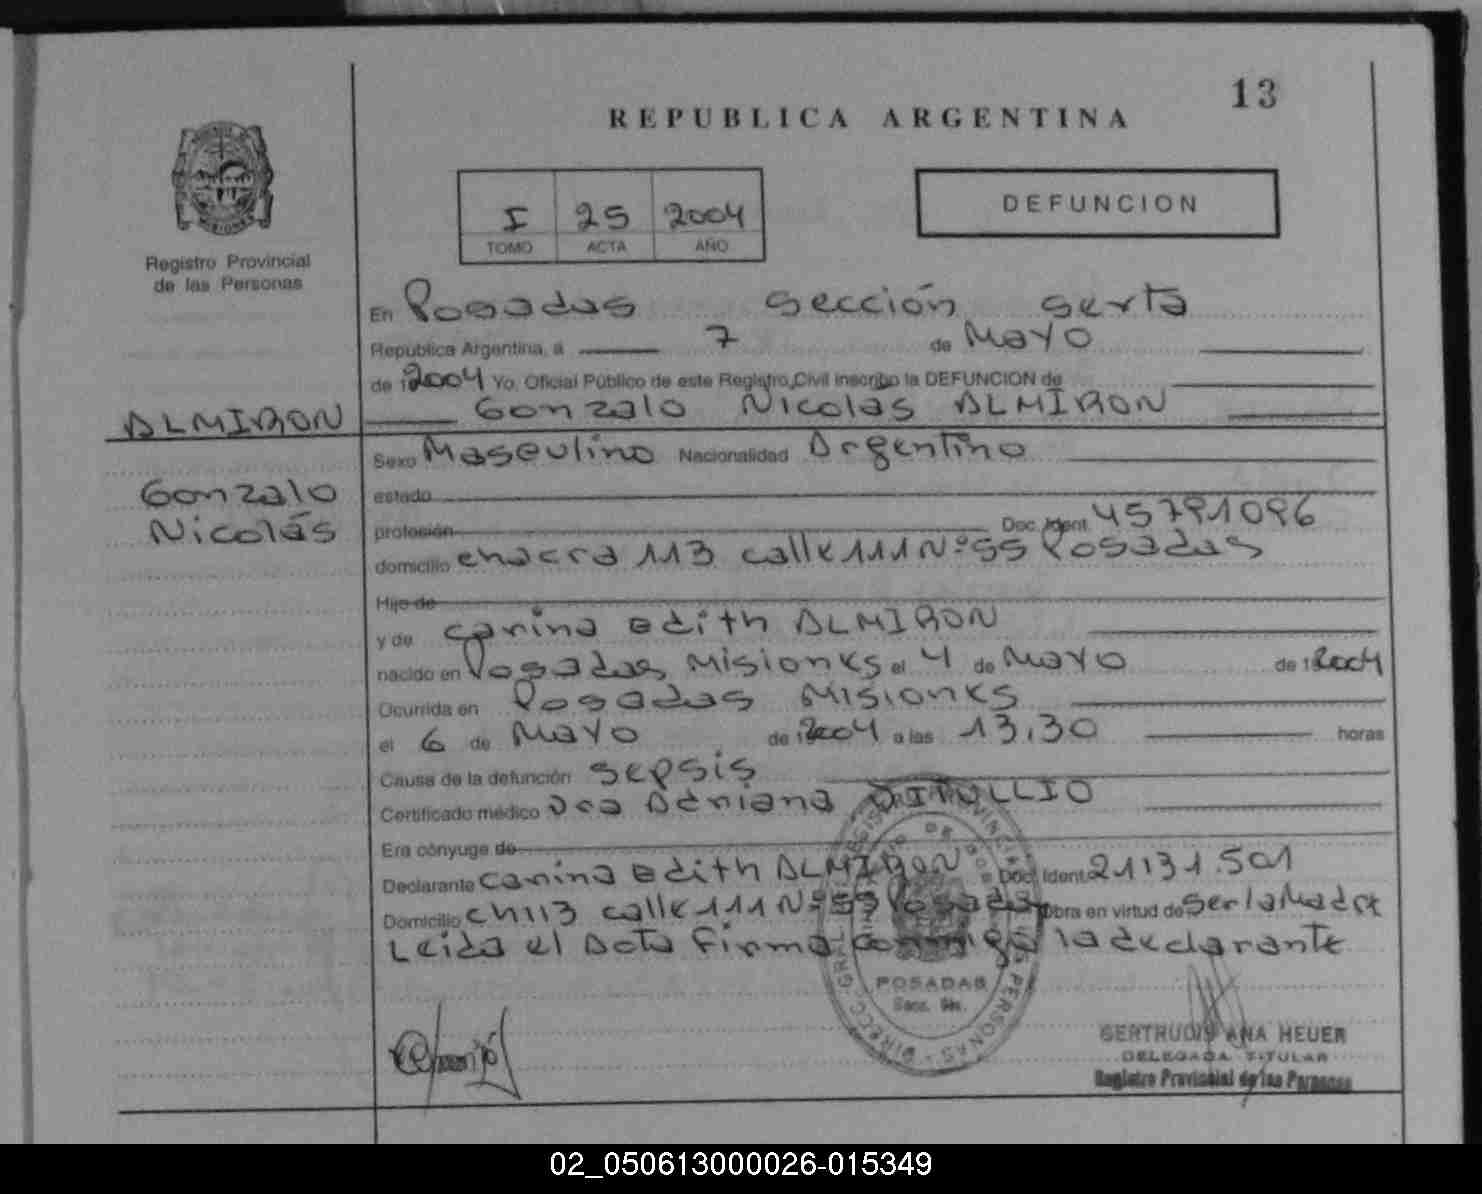 13
REPUBLICA ARGENTINA
MISIONES
Registro Provincial
de las Personas
I 25 2004
TOMO ACTA AÑO
DEFUNCION
En Posadas sección sexta
República Argentina, a 7 de Mayo
de 2004 Yo, Oficial Público de este Registro Civil inscribo la DEFUNCION de
ALMIRON
Gonzalo Nicolas ALMIRON
Gonzalo
Nicolás
Sexo Masculino Nacionalidad Argentino
estado
profesión Doc. Ident. 45791096
domicilio chacra 113 calle 111 Nº 55 Posadas
Hijo de
y de Carina Edith ALMIRON
nacido en Posadas Misiones el 4 de Mayo de 2004
Ocurrida en Posadas Misiones
el 6 de Mayo de 2004 a las 13,30 horas
Causa de la defunción sepsis
Certificado médico Dra Adriana DITULLIO
Era cónyuge de
Declarante Carina Edith ALMIRON Doc. Ident. 21131.501
Domicilio ch113 calle 111 Nº 55 Posadas Obra en virtud de ser la Madre
Leida el Acta firma conmigo la declarante
POSADAS
GERTRUDIS ANA HEUER
DELEGADA TITULAR
Registro Provincial de las Personas
02_050613000026-015349